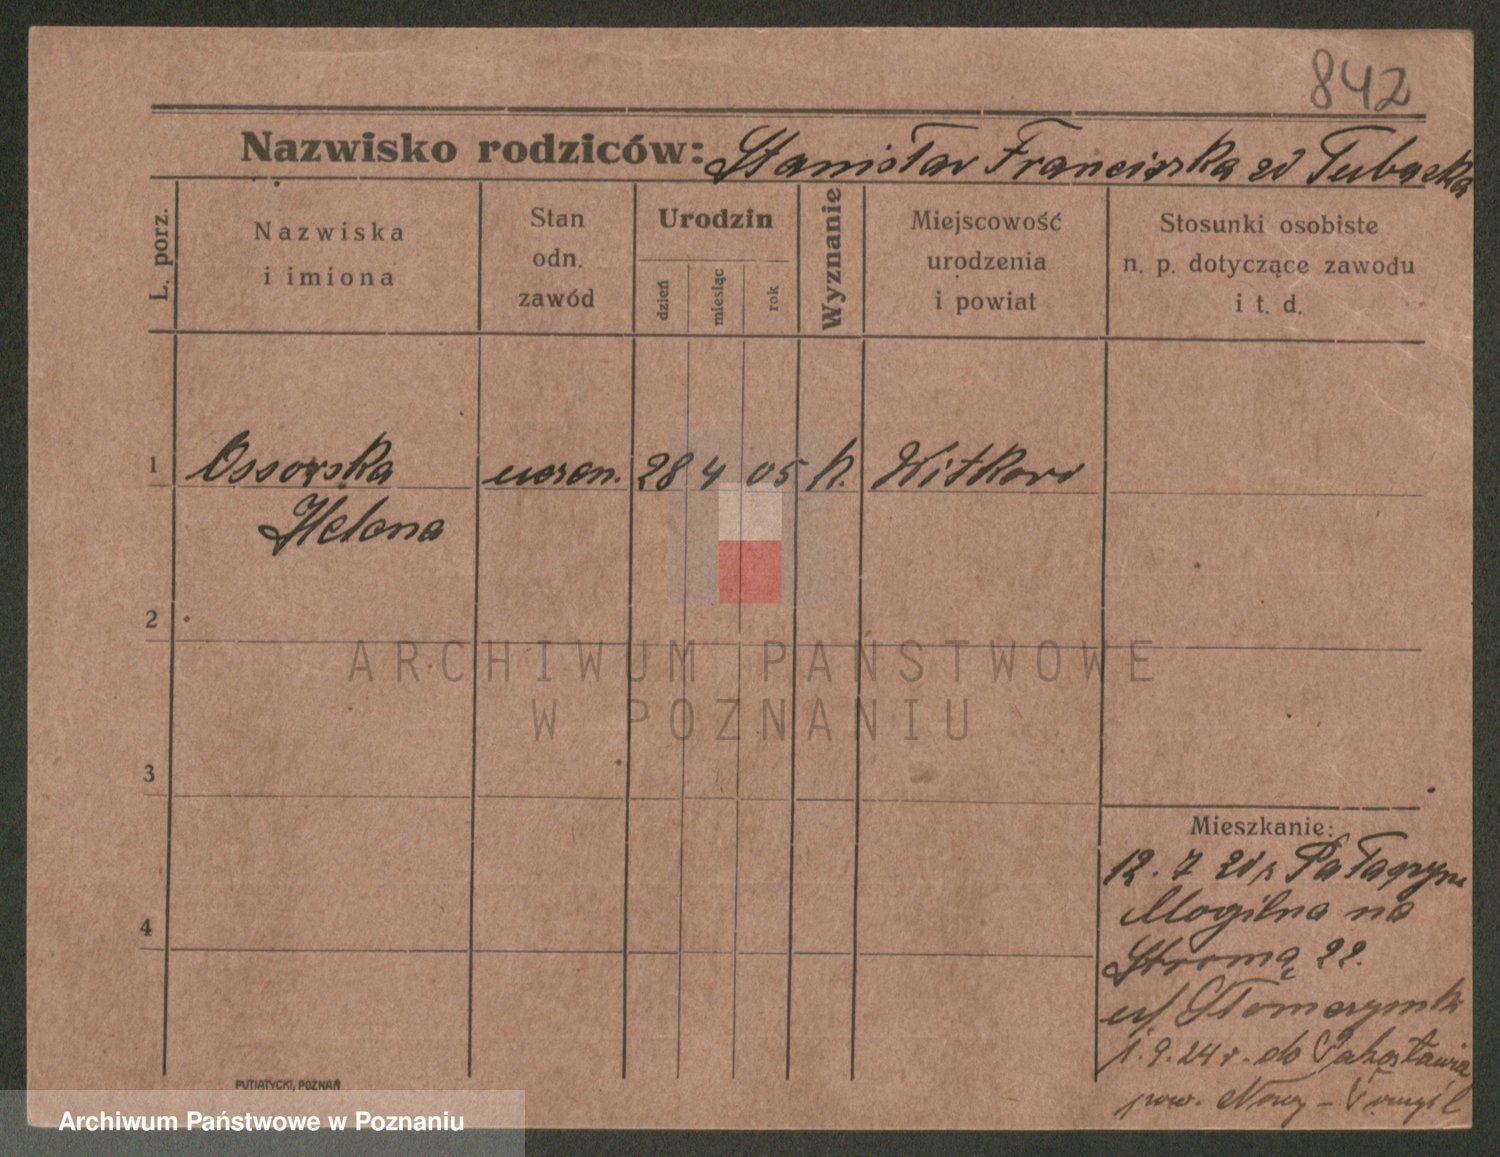 842
Nazwisko rodziców: Stanisław Franciszka zd Tubacka
L. porz.
Nazwiska
i imiona
Stan
odn.
zawód
Urodzin
dzień
miesiąc
rok
Wyznanie
Miejscowość
urodzenia
i powiat
Stosunki osobiste
n. p. dotyczące zawodu
i t. d.
1 Ossowska uczen. 28 4 05 k. Witkowo
Helena
2
ARCHIWUM PAŃSTWOWE
W POZNANIU
3
Mieszkanie:
12. 7 21 z
Mogilna na
4
Stromą 22.
1. 9. 24 r. do
pow. Nowy-
PUTIATYCKI, POZNAŃ
Archiwum Państwowe w Poznaniu